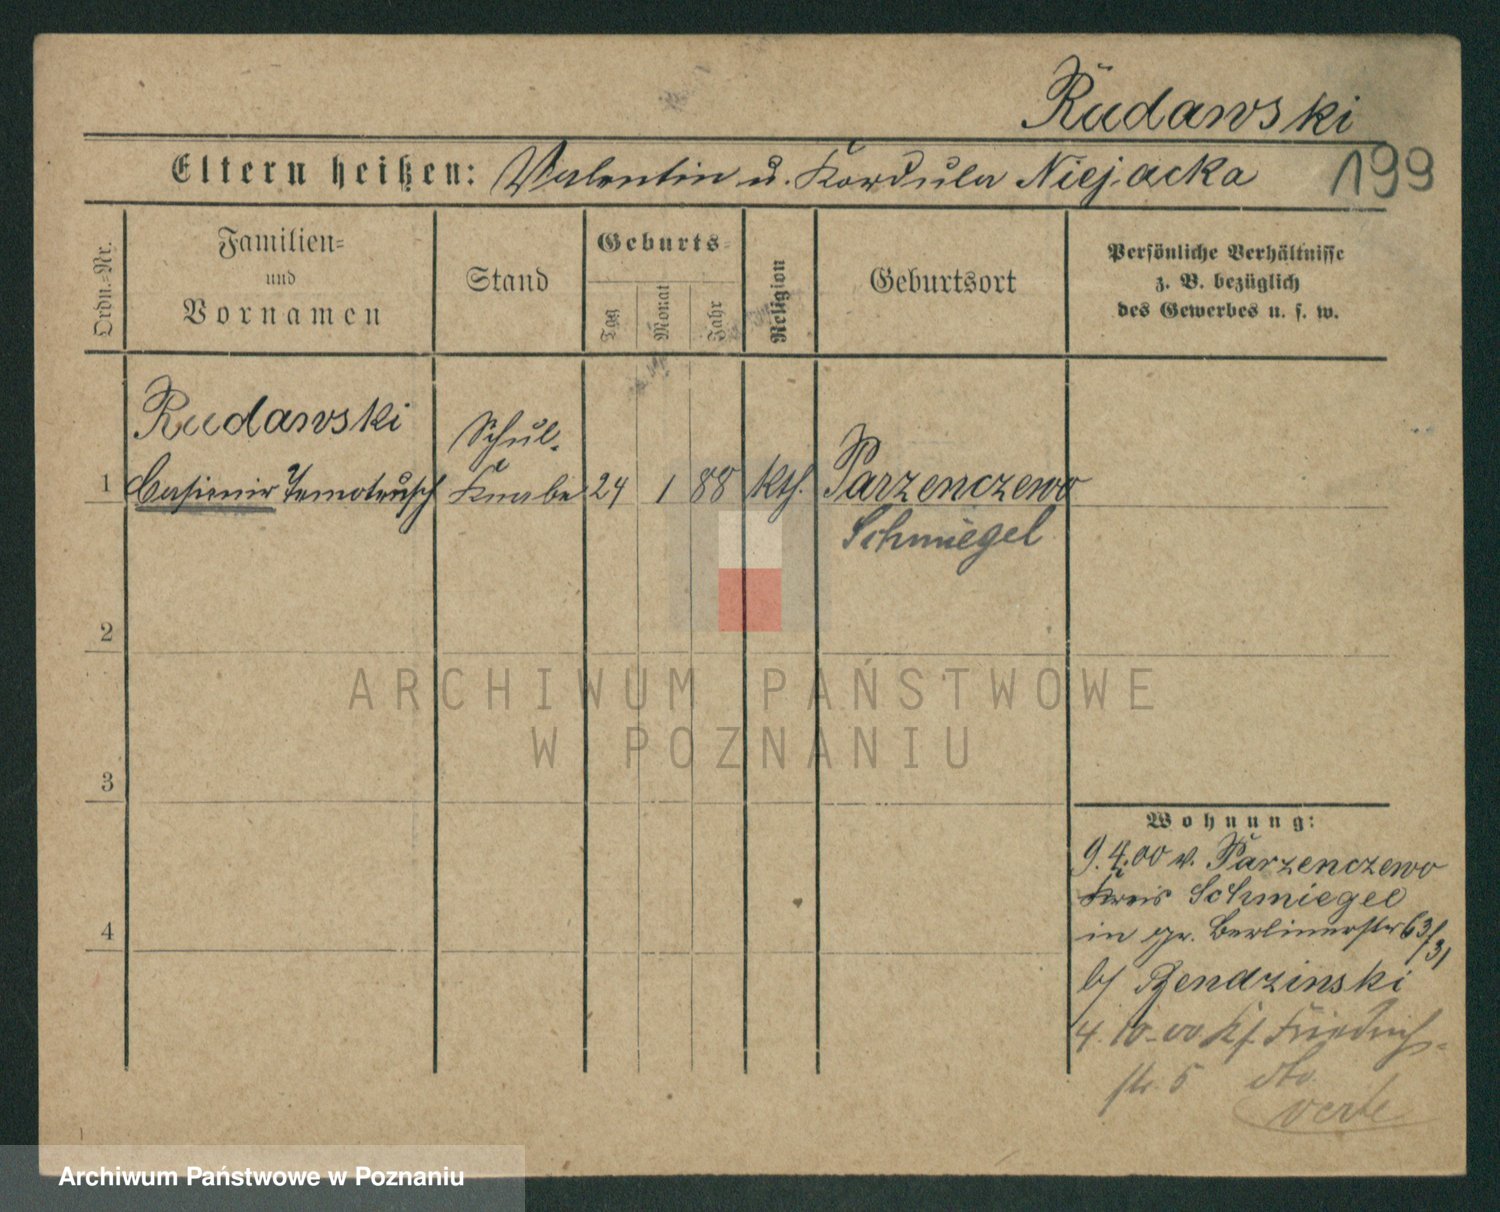 Rudawski
Eltern heißen: Valentin u. Kordula Niejacka
199
Ordn.-Nr.
Familien-
und
Vornamen
Stand
Geburts-
Tag
Monat
Jahr
Religion
Geburtsort
Persönliche Verhältnisse
z. B. bezüglich
des Gewerbes u. s. w.
Rudawski
Schul-
1 Casimir Temoteusch Knabe 24 1 88 kth. Parzenczewo
Schmiegel
2
ARCHIWUM PAŃSTWOWE
W POZNANIU
3
Wohnung:
9.4.00 v. Parzenczewo
Kreis Schmiegel
in gr. Berlinerstr 63/31
b/ Bendzinski
4. 10. 00 Kf. Friedrich-
str. 5 dto
verte
4
Archiwum Państwowe w Poznaniu